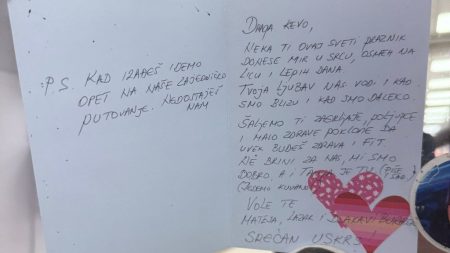 P.S. KAD IZAĐEŠ IDEMO
OPET NA NAŠE ZAJEDNIČKO
PUTOVANJE. NEDOSTAJEŠ
NAM
DRAGA KEVO,
NEKA TI OVAJ SVETI PRAZNIK
DONESE MIR U SRCU, OSMEH NA
LICU I LEPIH DANA.
TVOJA LJUBAV NAS VODI I KAD
SMO BLIZU I KAD SMO DALEKO.
ŠALJEMO TI ZAGRLJAJE, POLJUPCE
I MALO ZDRAVE POKLONE DA
UVEK BUDEŠ ZDRAVA I FIT.
NE BRINI ZA NAS, MI SMO
DOBRO, A I TATA JE TU (PIŠE
I SAO)
KUVANO
VOLE TE
MATEJA, LAZAR I
SREĆAN USKRS!